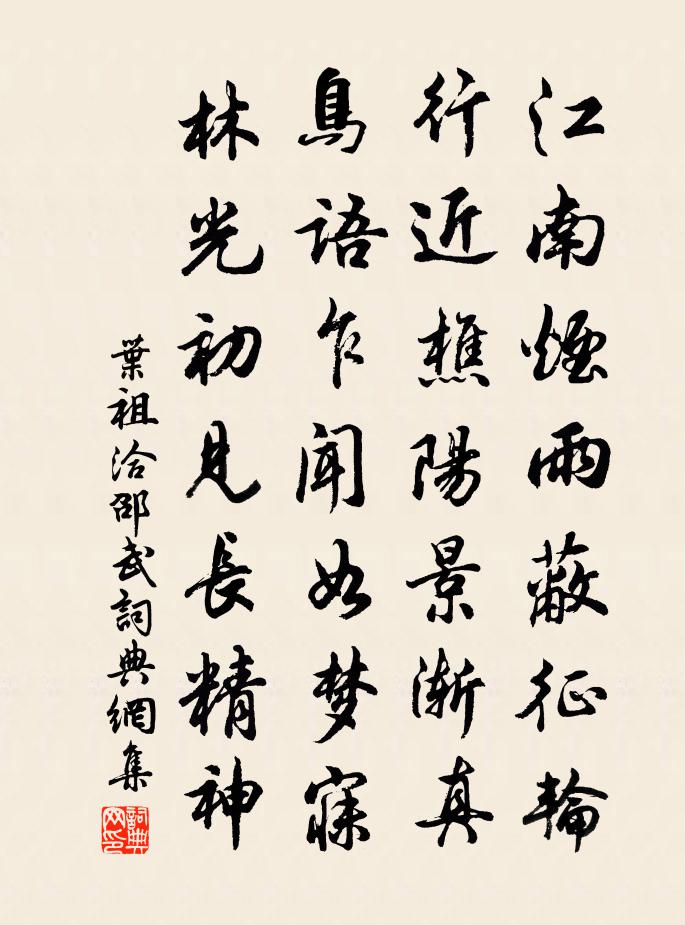 江南煙雨蔽征輪
行近樵陽景漸真
鳥語乍聞如梦寐
林光初見長精神
葉祖洽邵武詞典網集
詞典网印